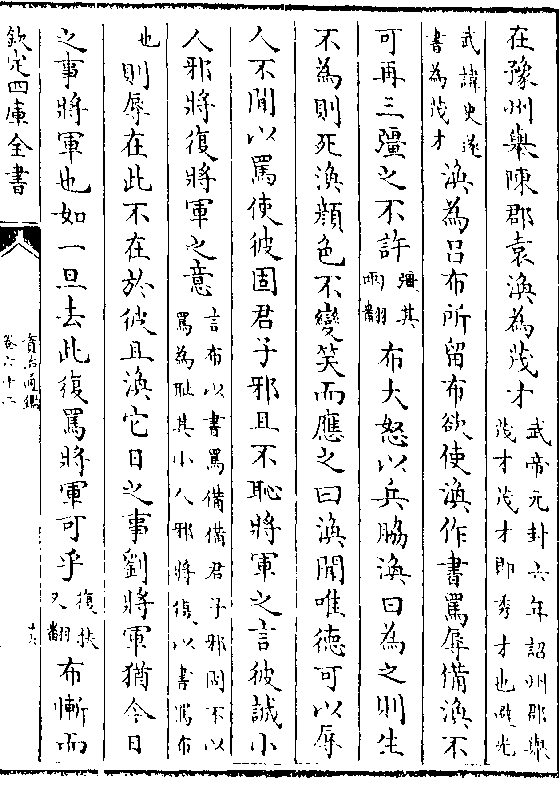 在豫州舉陳郡袁渙為茂才武帝元封六年詔州郡舉茂才茂才即秀才也避光
武諱史遂書為茂才渙為呂布所留布欲使渙作書罵辱備渙不
可再三彊之不許彊其兩翻布大怒以兵脇渙曰為之則生
不為則死渙顔色不變笑而應之曰渙聞唯德可以辱
人不聞以罵使彼固君子邪且不恥將軍之言彼誠小
人邪將復將軍之意言布以書罵備備君子邪固不以罵為耻其小人邪將復以書罵布
也則辱在此不在於彼且渙它日之事劉將軍猶今日
之事將軍也如一旦去此復罵將軍可乎復扶又翻布慚而
欽定四庫全書
資治通鑑
卷六十二
十六